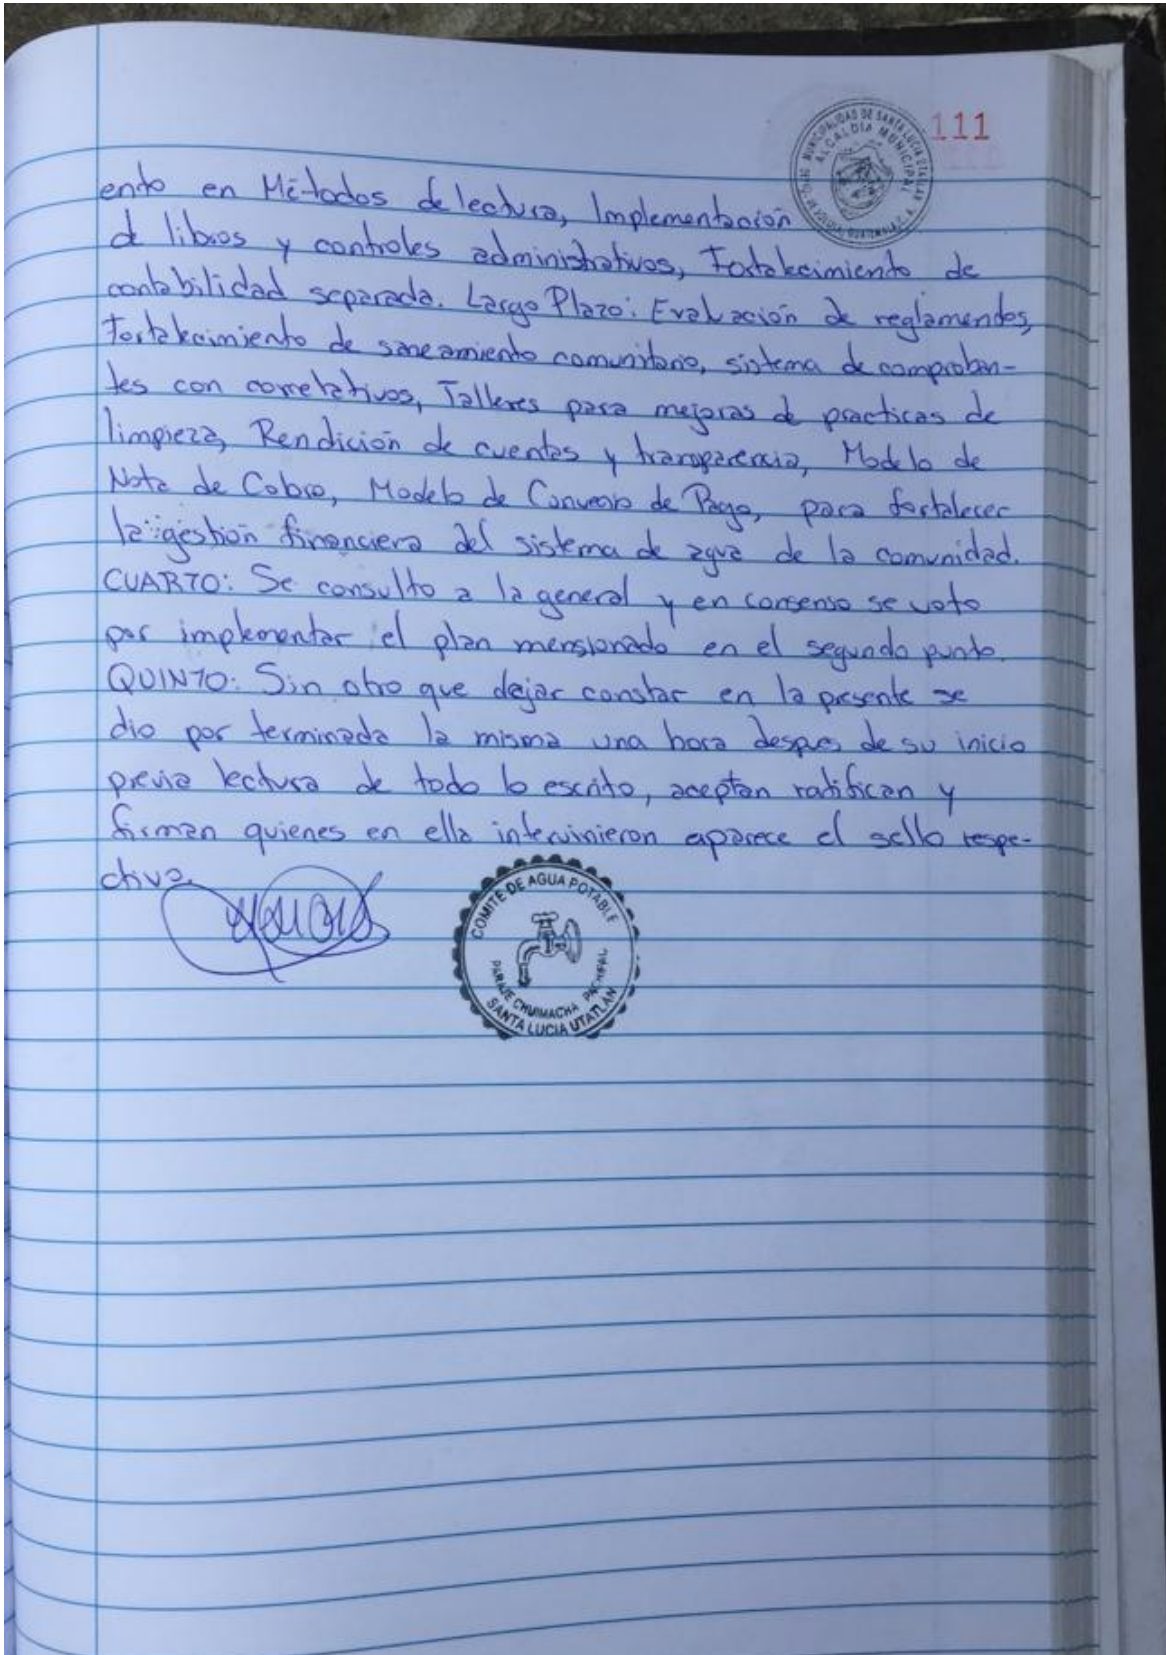 111
MUNICIPALIDAD DE SANTA LUCIA UTATLAN
ALCALDIA MUNICIPAL
ento en Métodos de lectura, Implementación
d libros y controles administrativos, Fortalecimiento de
contabilidad separada. Largo Plazo: Evaluación de reglamendos,
Fortalecimiento de saneamiento comunitario, sistema de comproban-
tes con correlativos, Talleres para mejoras de practicas de
limpieza, Rendición de cuentas y transparencia, Modelo de
Nota de Cobro, Modelo de Convenio de Pago, para fortalecer
la gestión financiera del sistema de agua de la comunidad.
CUARTO: Se consulto a la general y en consenso se voto
por implementar el plan mensionado en el segundo punto.
QUINTO: Sin otro que dejar constar en la presente se
dio por terminada la misma una hora despues de su inicio
previa lectura de todo lo escrito, aceptan ratifican y
firman quienes en ella intervinieron aparece el sello respe-
ctivo.
COMITE DE AGUA POTABLE
PARAJE CHUIMACHA
SANTA LUCIA UTATLAN